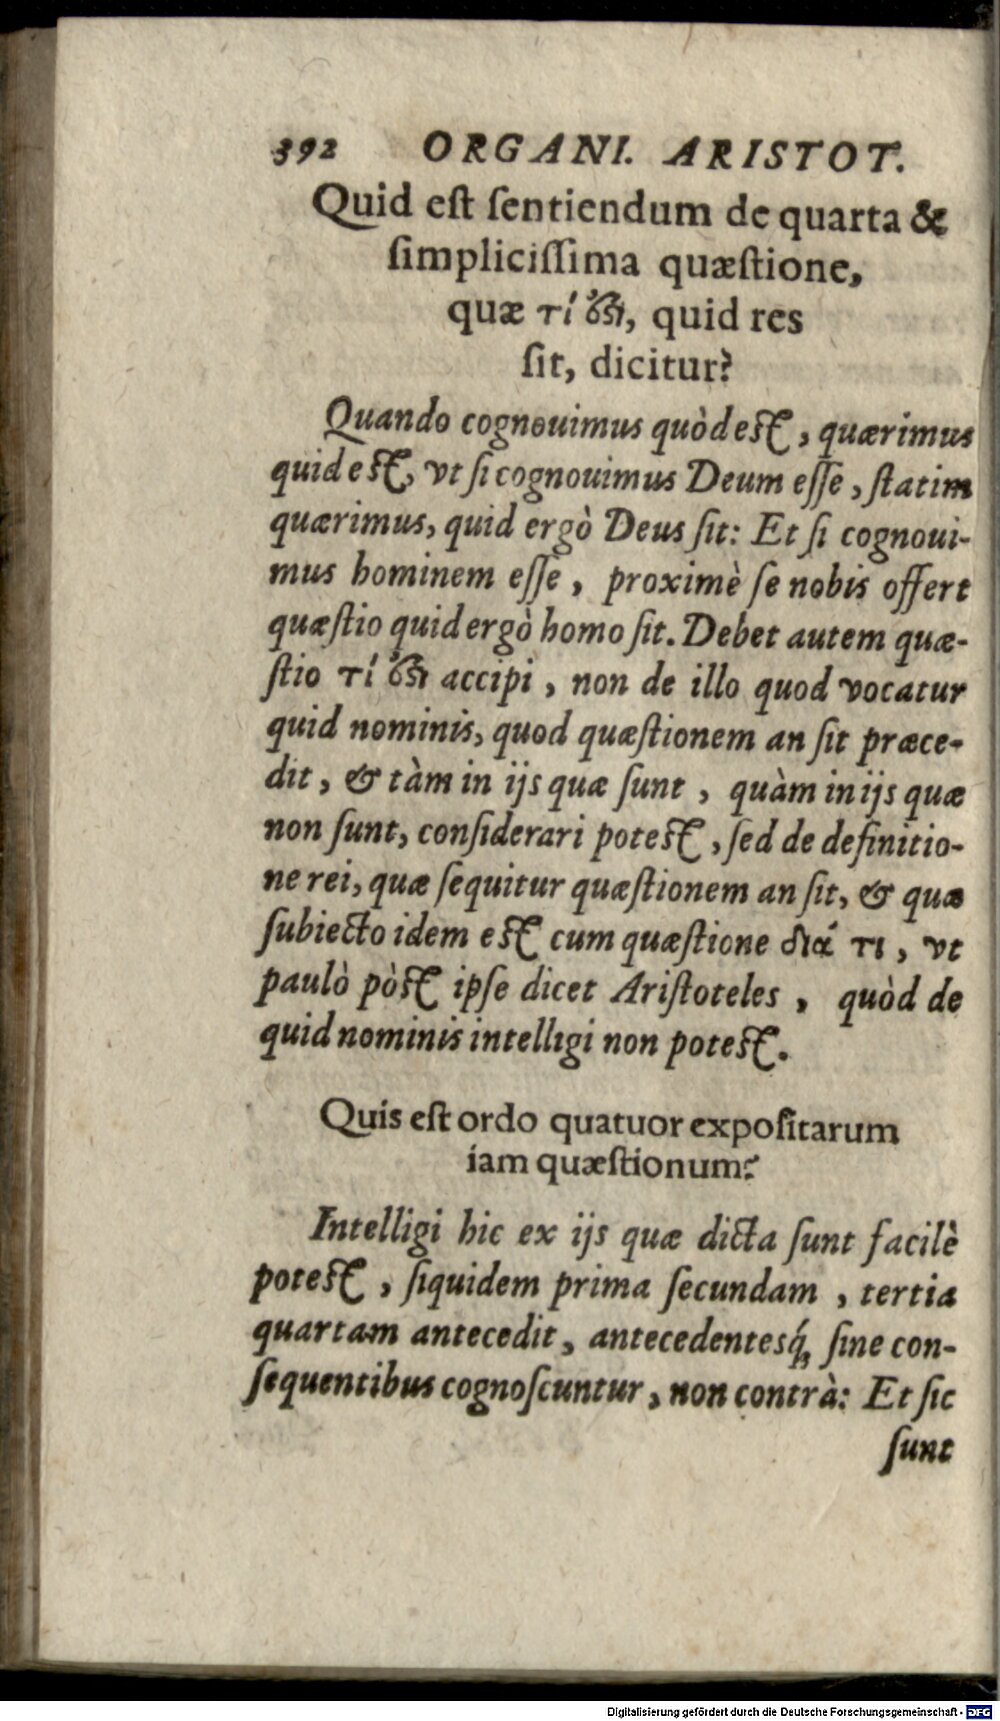 392 ORGANI. ARISTOT.
Quid eſt ſentiendum de quarta &
ſimpliciſſima quæſtione,
quæ τί ἐστι, quid res
ſit, dicitur?
Quando cognouimus quòd eſt, quærimus
quid eſt, vt ſi cognouimus Deum eſſe, ſtatim
quærimus, quid ergò Deus ſit: Et ſi cognoui-
mus hominem eſſe, proximè ſe nobis offert
quæſtio quid ergò homo ſit. Debet autem quæ-
ſtio τί ἐστι accipi, non de illo quod vocatur
quid nominis, quod quæſtionem an ſit præce-
dit, & tàm in ijs quæ ſunt, quàm in ijs quæ
non ſunt, conſiderari poteſt, ſed de definitio-
ne rei, quæ ſequitur quæſtionem an ſit, & quæ
ſubiecto idem eſt cum quæſtione διά τι, vt
paulò pòſt ipſe dicet Ariſtoteles, quòd de
quid nominis intelligi non poteſt.
Quis eſt ordo quatuor expoſitarum
iam quæſtionum?
Intelligi hic ex ijs quæ dicta ſunt facilè
poteſt, ſiquidem prima ſecundam, tertia
quartam antecedit, antecedentesq́; ſine con-
ſequentibus cognoſcuntur, non contrà: Et ſic
ſunt
Digitalisierung gefördert durch die Deutsche Forschungsgemeinschaft - DFG